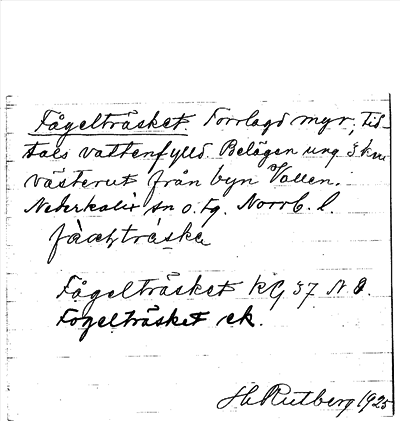 Fågelträsket. Torrlagd myr, tid-
tals vattenfylld. Belägen ung. 3 km
västerut från byn Vallen.
Nederkalix sn o. tg. Norrb. l.
Fågelträsket KG 37 N.O.
Fogelträsket ek.
H. Rutberg 1925